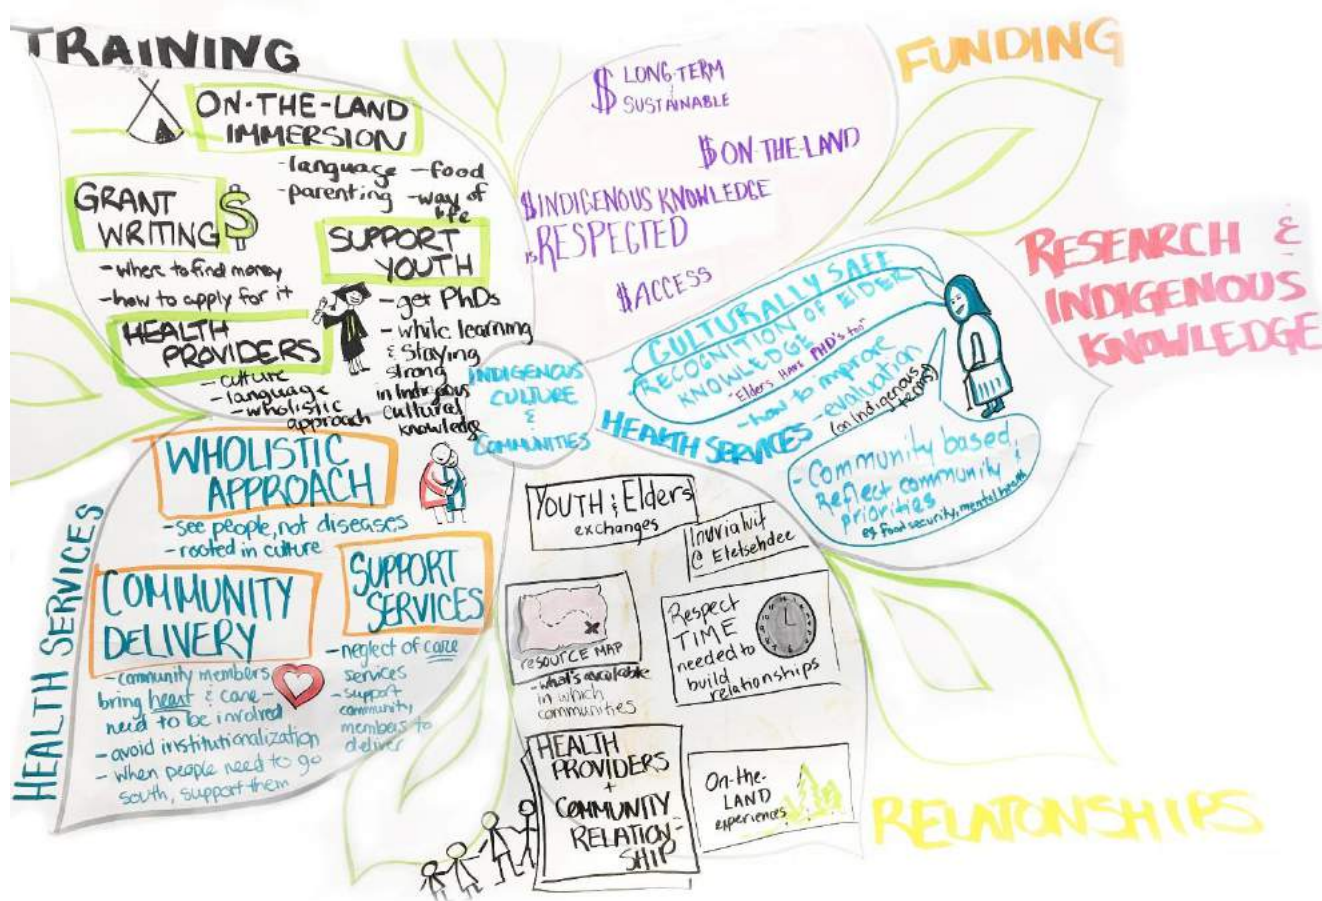 TRAINING
ON-THE-LAND
IMMERSION
- language - food
- parenting - way of
life
GRANT
WRITING $
- where to find money
- how to apply for it
SUPPORT
YOUTH
- get PhDs
- while learning
& staying
strong
in Indigenous
cultural
knowledge
HEALTH
PROVIDERS
- culture
- language
- wholistic
approach
FUNDING
$ LONG-TERM
SUSTAINABLE
$ ON-THE-LAND
$ INDIGENOUS KNOWLEDGE
is RESPECTED
$ ACCESS
RESEARCH &
INDIGENOUS
KNOWLEDGE
- CULTURALLY SAFE
- RECOGNITION OF ELDER
KNOWLEDGE
"Elders HAVE PHD's too"
- how to improve
HEALTH SERVICES
- evaluation
(on Indigenous
terms)
- Community based,
Reflect community &
priorities
eg food security, mental health
INDIGENOUS
CULTURE
&
COMMUNITIES
HEALTH SERVICES
WHOLISTIC
APPROACH
- see people, not diseases
- rooted in culture
COMMUNITY
DELIVERY
- community members
bring heart & care -
need to be involved
- avoid institutionalization
- When people need to go
south, support them
SUPPORT
SERVICES
- neglect of care
services
- support
community
members to
deliver
YOUTH & Elders
exchanges
Inuvialuit
@ Eletsehdee
RESOURCE MAP
- what's available
in which
communities
Respect
TIME
needed to
build
relationships
HEALTH
PROVIDERS
+
COMMUNITY
RELATION-
SHIP
On-the-
LAND
experiences
RELATONSHIPS